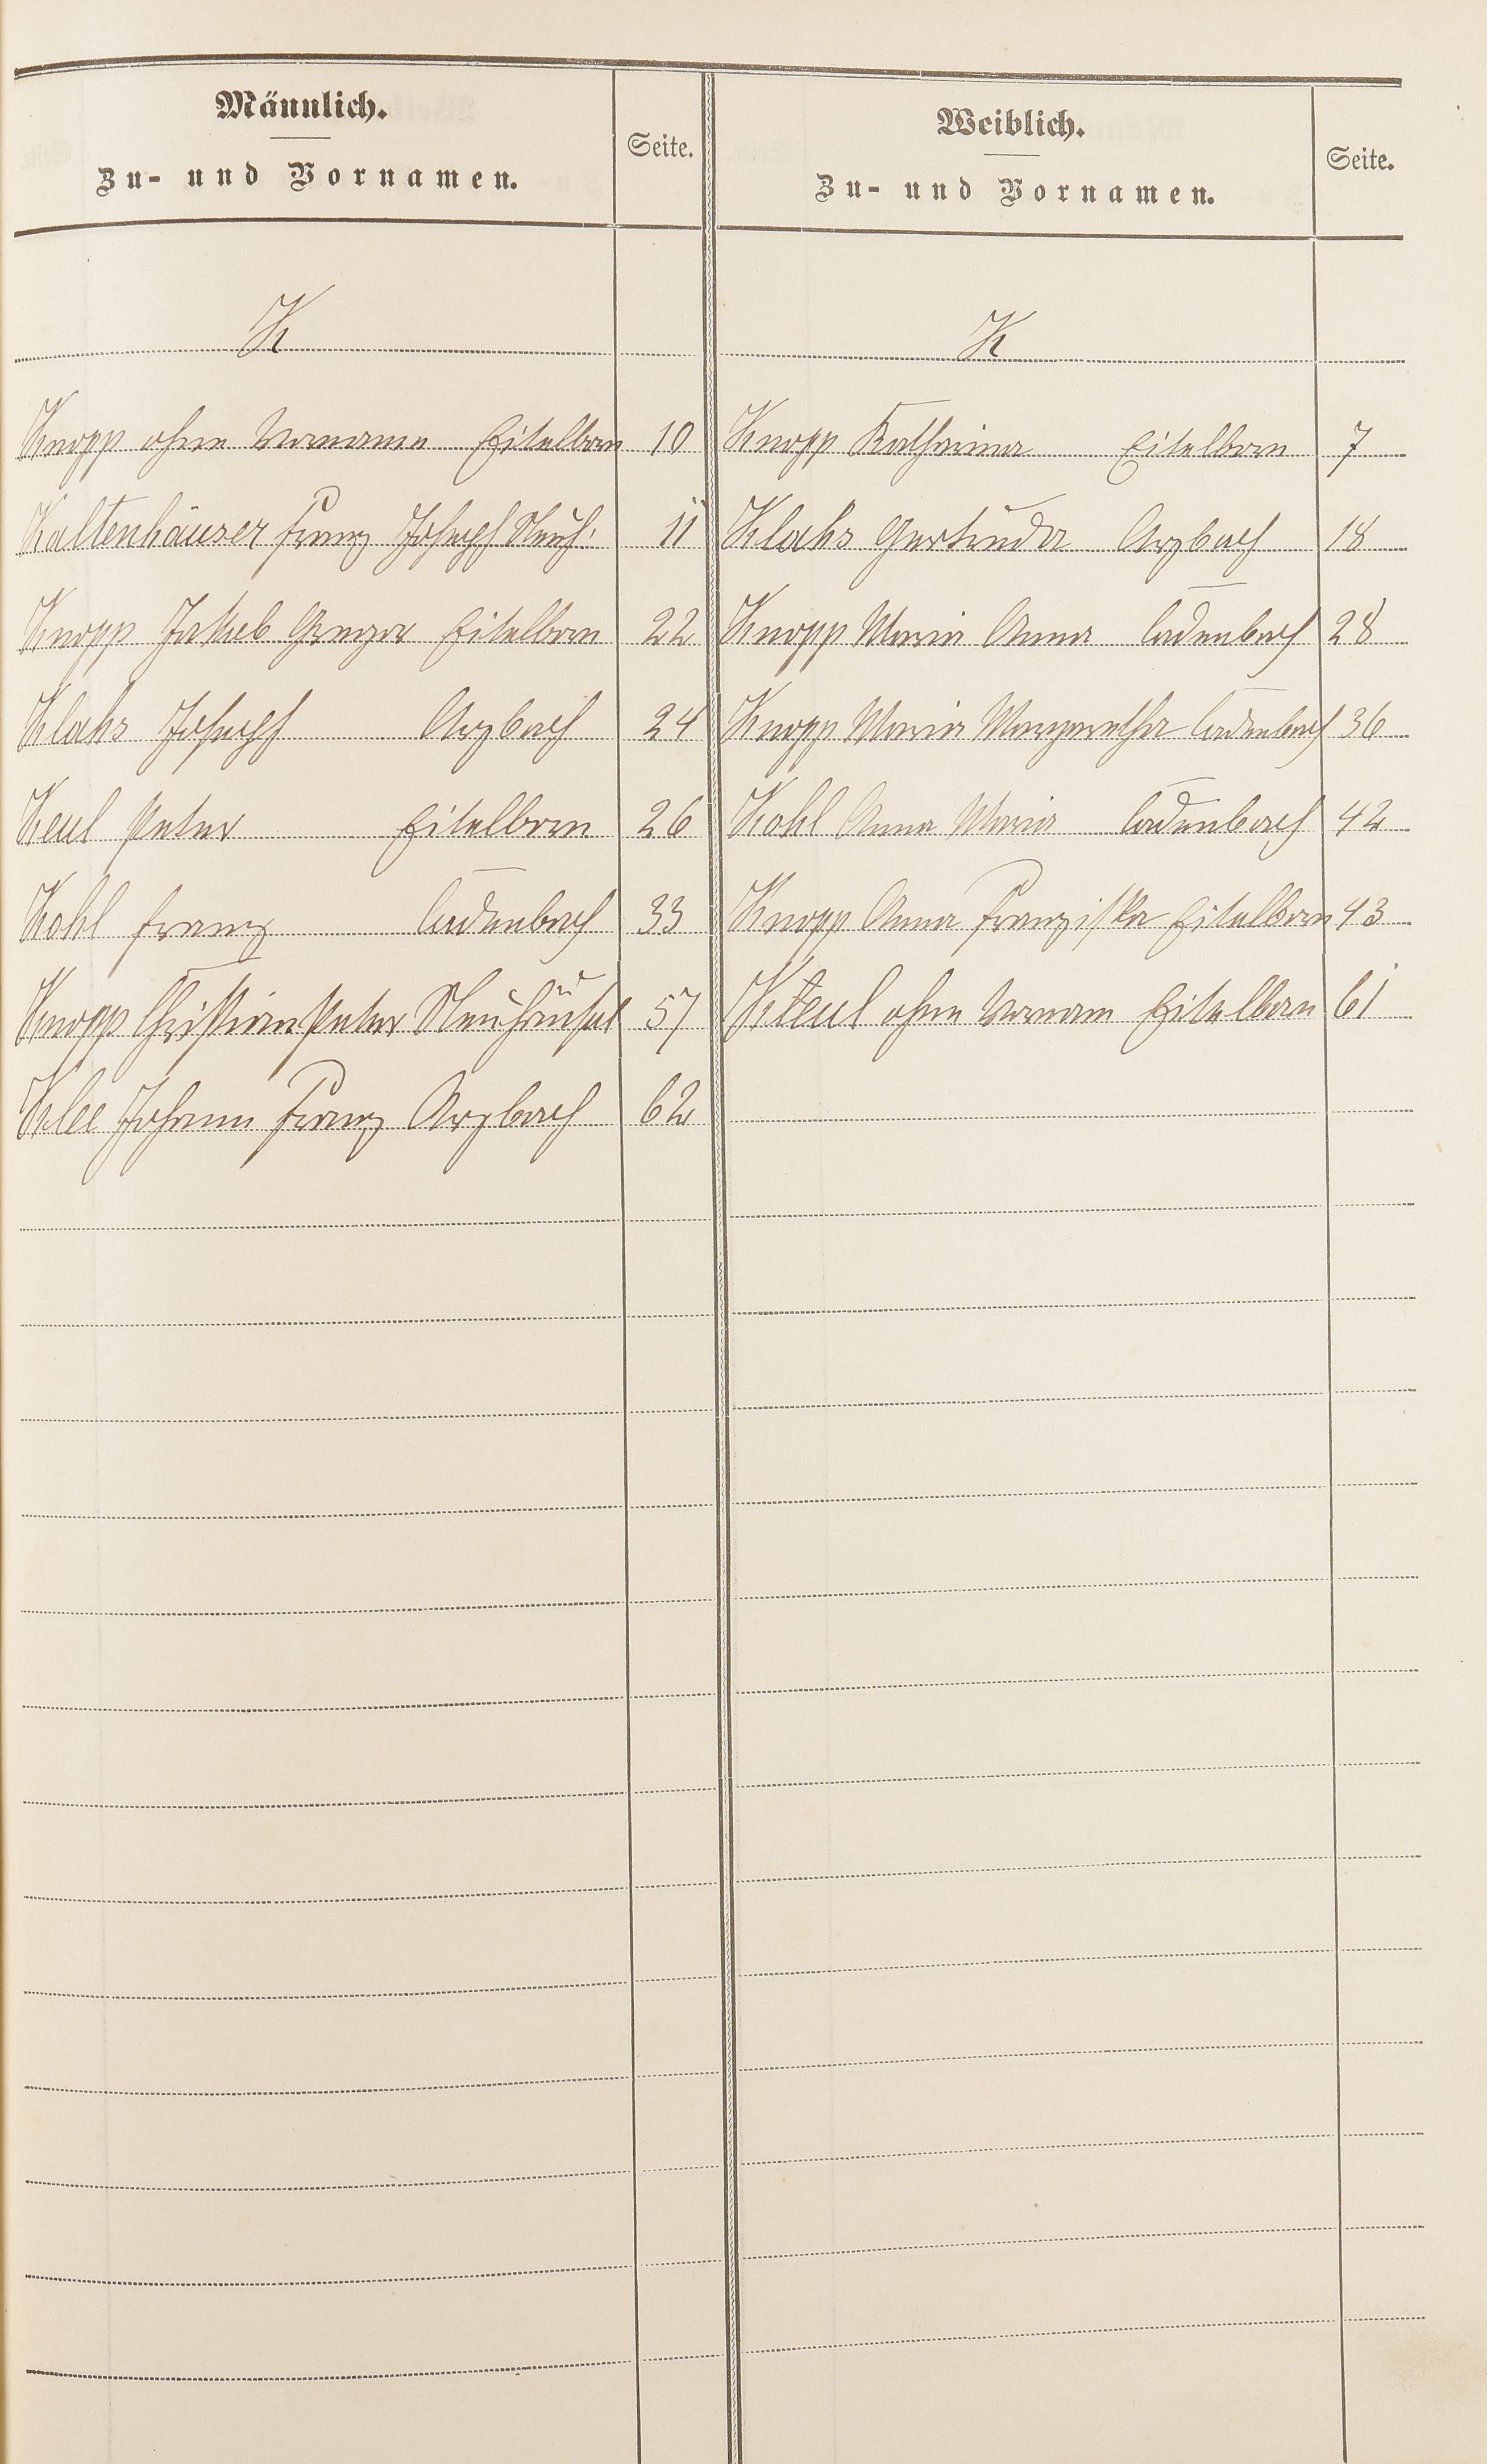 Männlich.
Zu- und Vornamen.
Seite.
Weiblich.
Zu- und Vornamen.
Seite.
K
K
Knopp ohne Vorname Eitelborn 10
Knopp Katharina Eitelborn 7
Kaltenhäuser Franz Joseph Neuh. 11
Klahs Gertruda Arzbach 18
Knopp Jakob Gregor Eitelborn 22
Knopp Maria Anna Cadenbach 28
Klahs Joseph Arzbach 24
Knopp Maria Margaretha Cadenbach 36
Keul Peter Eitelborn 26
Kohl Anna Maria Cadenbach 42
Kohl Franz Cadenbach 33
Knopp Anna Franziska Eitelborn 43
Knopp Christian Peter Neuhäusel 57
Keul ohne Vornam Eitelborn 61
Klee Johann Franz Arzbach 62